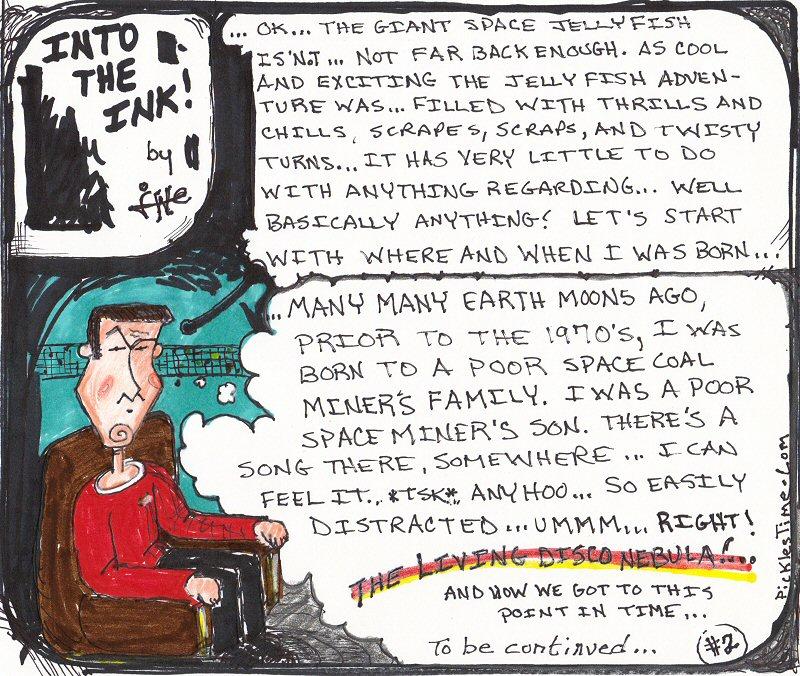 INTO
THE
INK!
by
... OK... THE GIANT SPACE JELLYFISH
IS'N.T... NOT FAR BACK ENOUGH. AS COOL
AND EXCITING THE JELLYFISH ADVEN-
TURE WAS... FILLED WITH THRILLS AND
CHILLS, SCRAPES, SCRAPS, AND TWISTY
TURNS... IT HAS VERY LITTLE TO DO
WITH ANYTHING REGARDING... WELL
BASICALLY ANYTHING! LET'S START
WITH WHERE AND WHEN I WAS BORN...
...MANY MANY EARTH MOONS AGO,
PRIOR TO THE 1970'S, I WAS
BORN TO A POOR SPACE COAL
MINER'S FAMILY. I WAS A POOR
SPACE MINER'S SON. THERE'S A
SONG THERE, SOMEWHERE... I CAN
FEEL IT.. *TSK* ANYHOO... SO EASILY
DISTRACTED...UMMM... RIGHT!
THE LIVING DISCO NEBULA!...
AND HOW WE GOT TO THIS
POINT IN TIME...
To be continued...
#2
PicklesTime.com